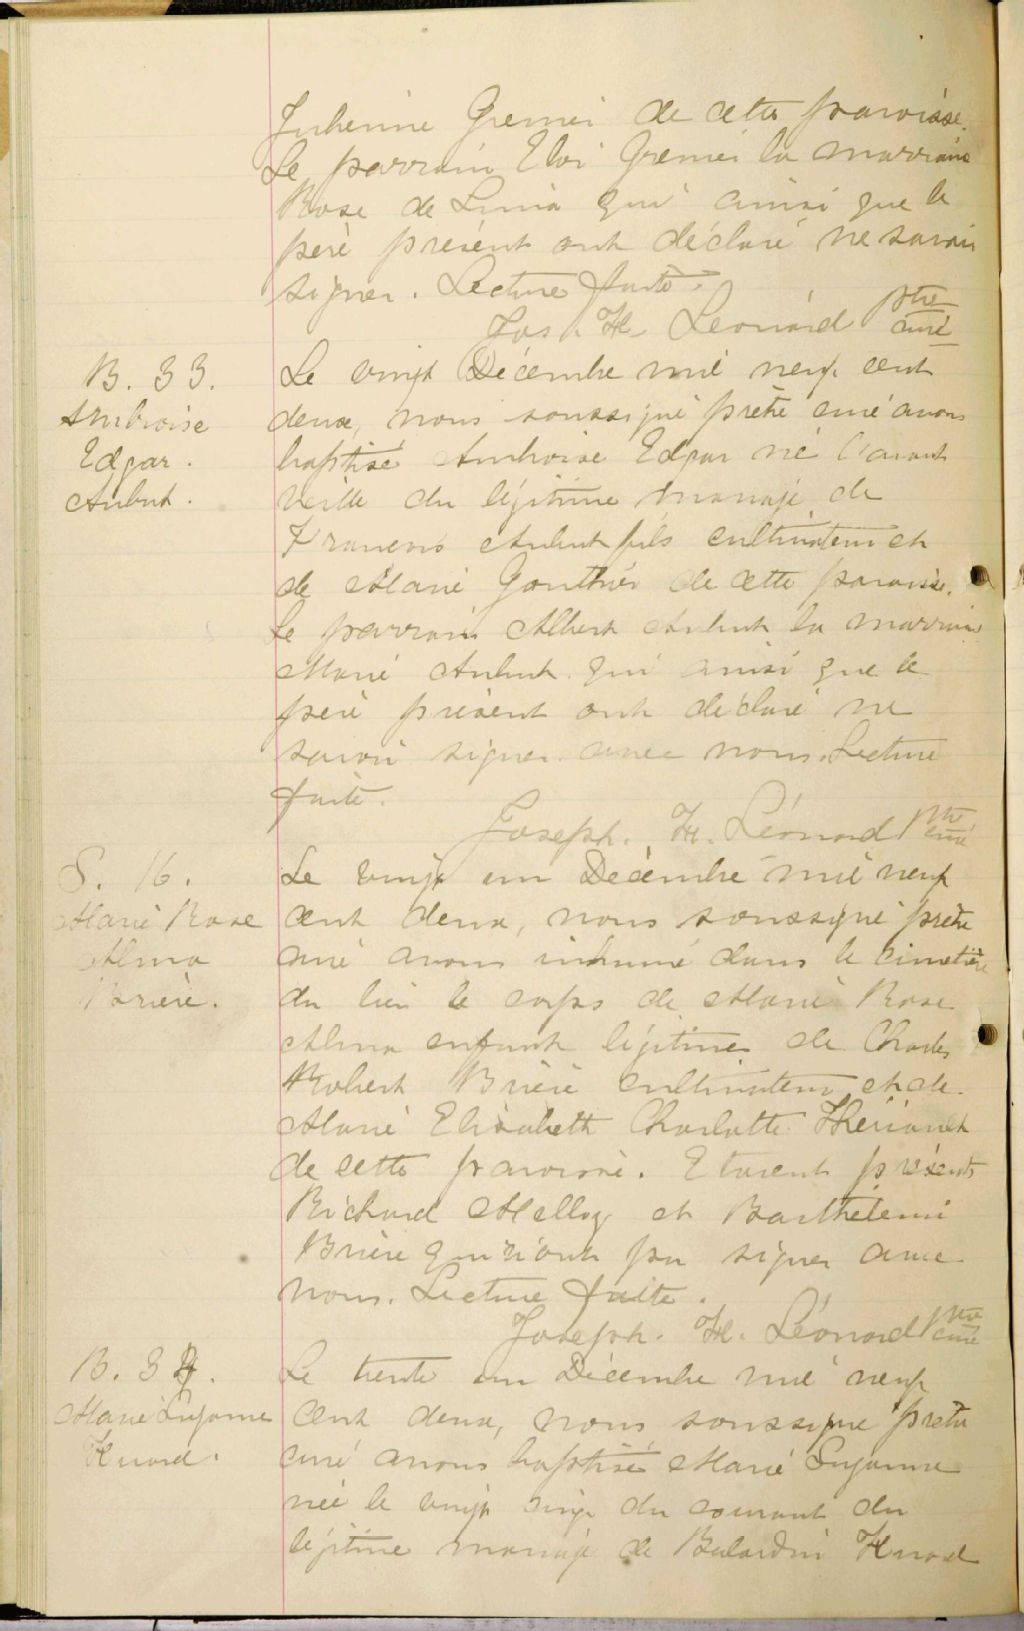 Julienne Grenier de cette paroisse.
Le parrain Eloi Grenier la marraine
Rose de Lima qui ainsi que le
père présent ont déclaré ne savoir
signer. Lecture faite.
Jos. H. Léonard ptre
curé
B. 33.
Ambroise
Edgar.
Aubut.
Le vingt Décembre mil neuf cent
deux, nous soussigné prêtre curé avons
baptisé Ambroise Edgar né l'avant
veille du légitime mariage de
Francois Aubut fils cultivateur et
de Marie Gauthier de cette paroisse.
Le parrain Albert Aubut la marraine
Marie Aubut qui ainsi que le
père présent ont déclaré ne
savoir signer avec nous. Lecture
faite.
Joseph. H. Léonard ptre
curé
S. 16.
Marie Rose
Alma
Brière.
Le vingt un Décembre mil neuf
cent deux, nous soussigné prêtre
curé avons inhumé dans le cimetière
du lieu le corps de Marie Rose
Alma enfant légitime de Charles
Robert Brière cultivateur et de
Marie Elisabeth Charlotte Thériault
de cette paroisse. Etaient présents
Richard Melloy et Barthélemi
Brière qui n'ont pu signer avec
nous. Lecture faite.
Joseph. H. Léonard ptre
curé
B. 34.
Marie Suzanne
Huard.
Le trente un Décembre mil neuf
cent deux, nous soussigné prêtre
curé avons baptisé Marie Suzanne
née le vingt cinq du courant du
légitime mariage de Huard